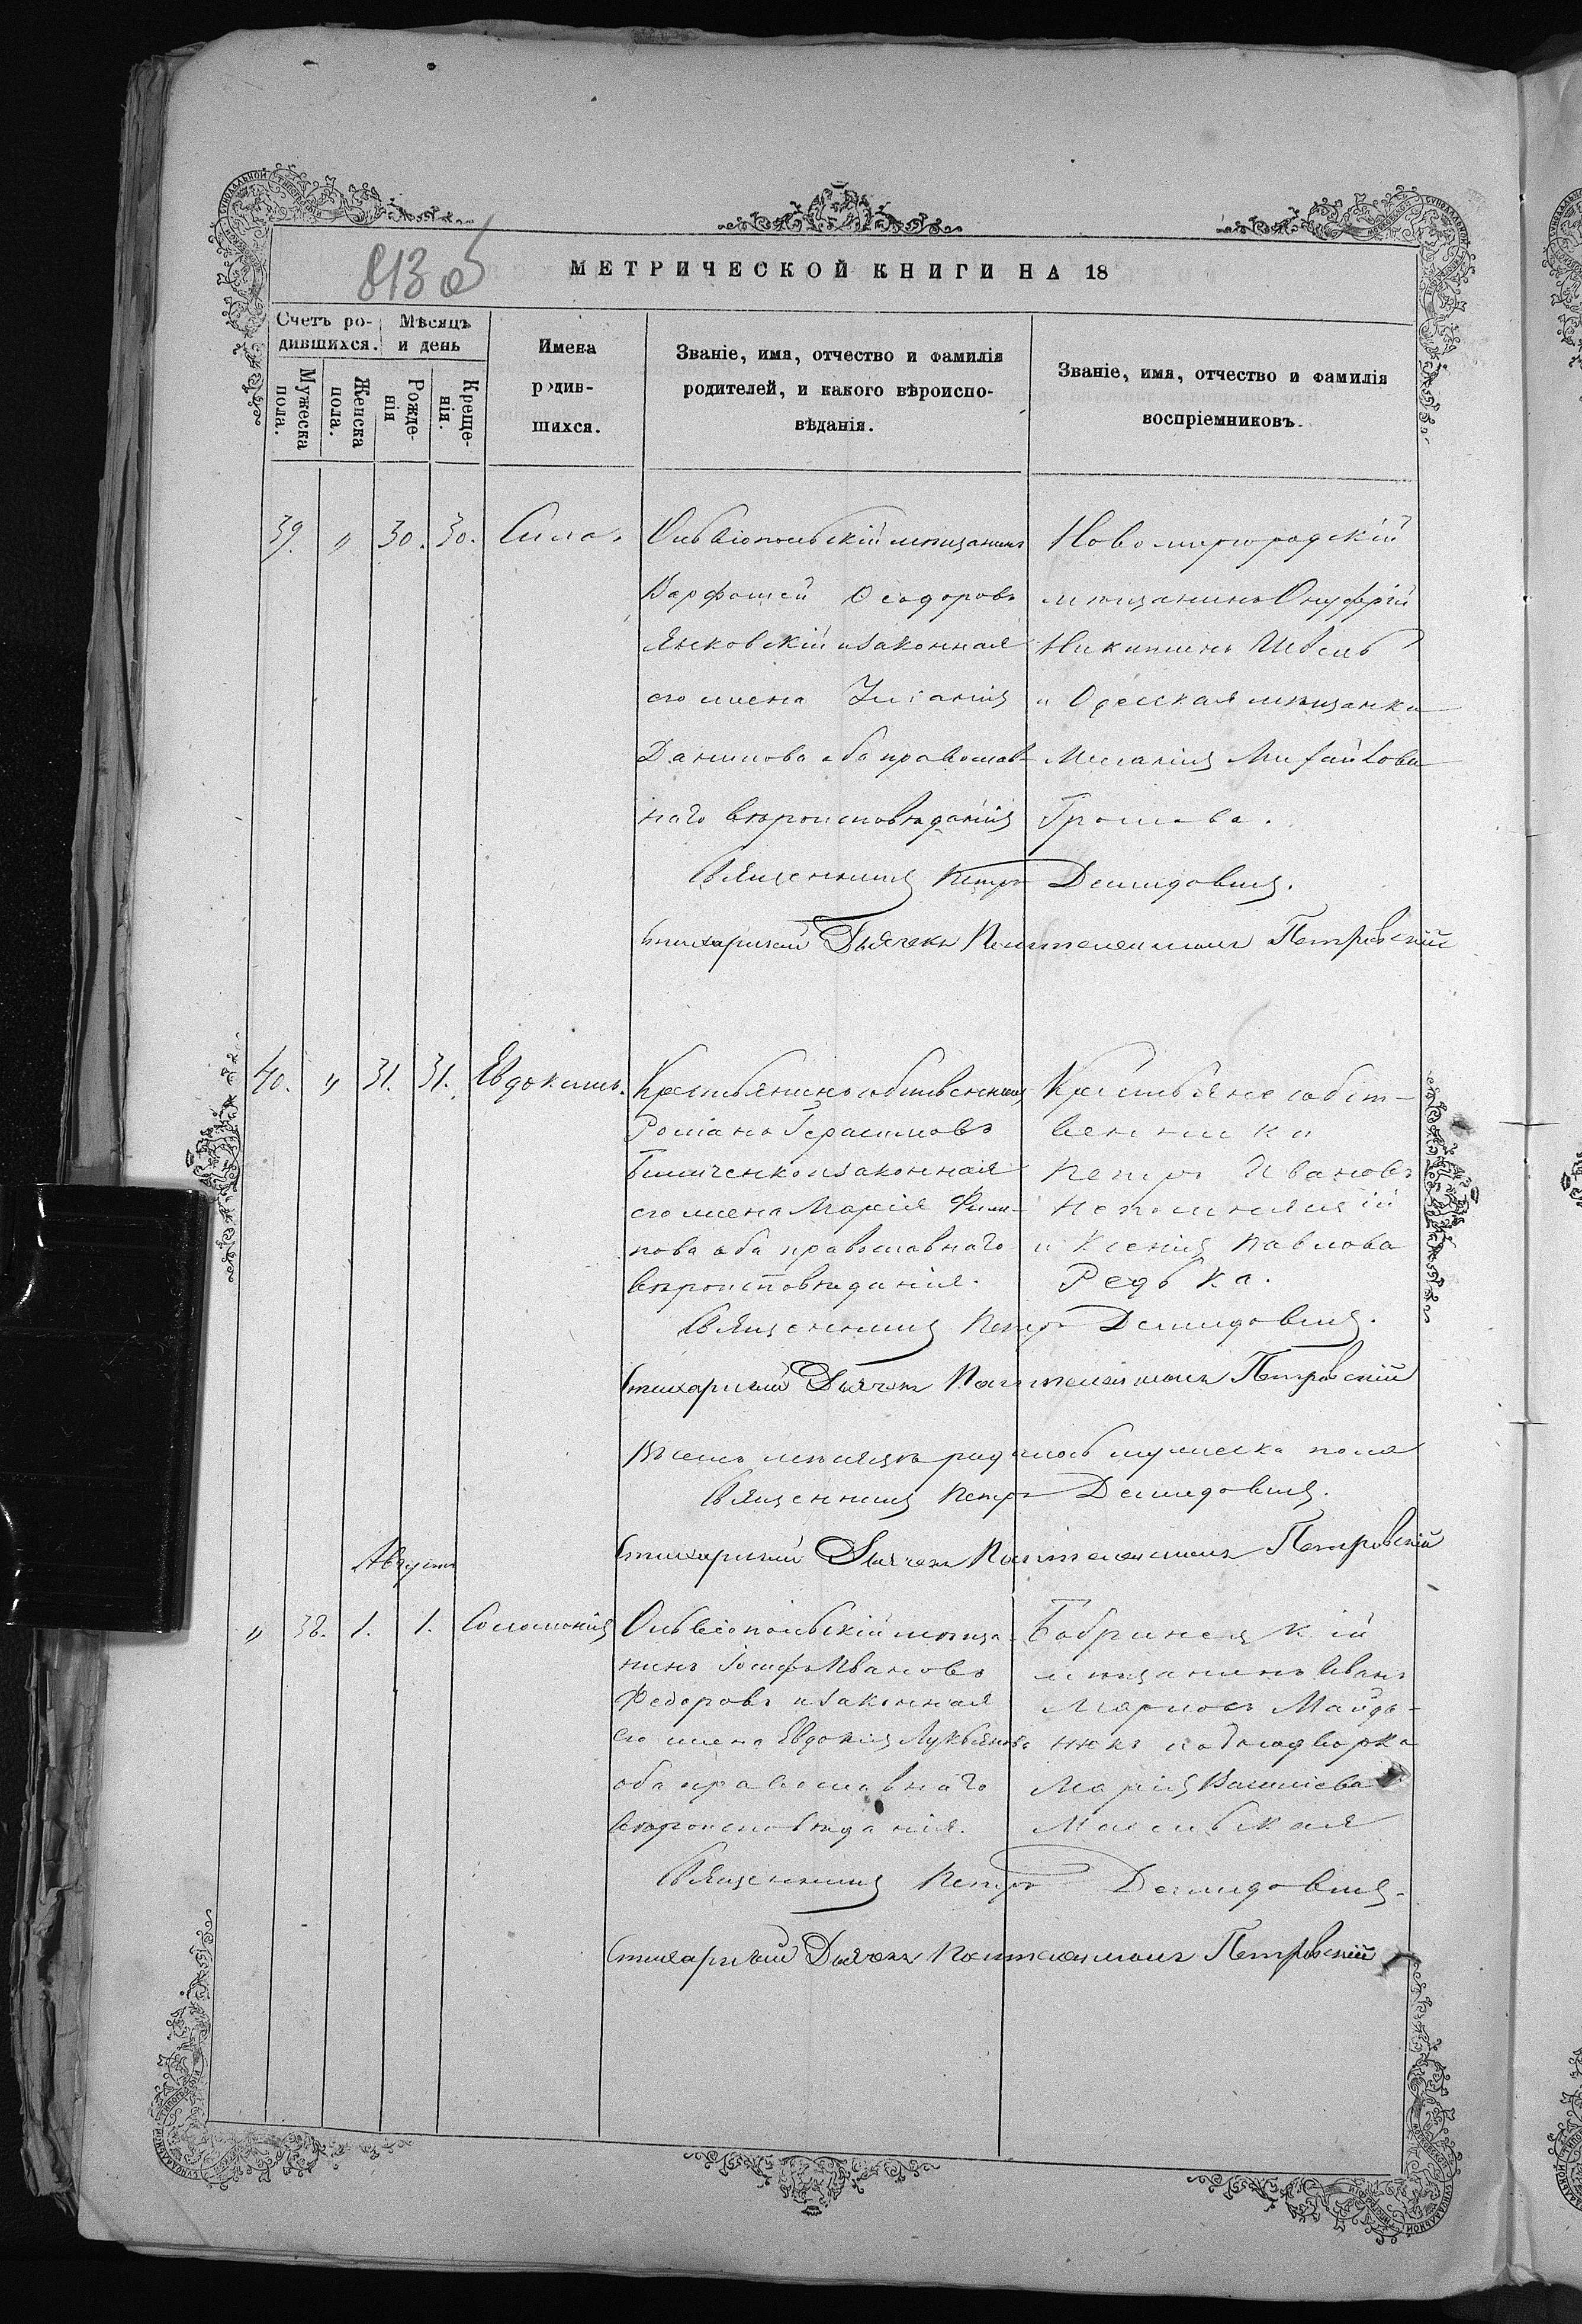 813 об
МЕТРИЧЕСКОЙ КНИГИ НА 18
Счетъ родившихся.
Мѣсяцъ и день
Мужеска пола.
Женска пола.
Рожденія
Крещенія.
Имена родившихся.
Званіе, имя, отчество и фамилія родителей, и какого вѣроисповѣданія.
Званіе, имя, отчество и фамилія воспріемниковъ.
39. " 30. 30. Сила.
Ольвіопольскій мѣщанинъ
Варфомей Ѳеодоровъ
Янковскій и законная
его жена
Данилова оба православ-
наго вѣроисповѣданія
Новомиргородскій
мѣщанинъ Онуфрій
Никитинъ Швецъ
и Одесская мѣщанка
Меланія Михайлова
Громова.
Священникъ Петръ Демидовичъ.
Стихарный Дьячекъ Пантелеимонъ Петровскій
40. " 31. 31. Евдокимъ.
Крестьянинъ собственникъ
Романъ Герасимовъ
и законная
его жена Марія Фили-
пова оба православнаго
вѣроисповѣданія.
Крестьяне собст-
венники
Петръ Ивановъ
Непомнящій
и Ксенія Павлова
Редька.
Священникъ Петръ Демидовичъ.
Стихарный Дьячекъ Пантелеимонъ Петровскій
Въ семъ мѣсяцѣ родилось мужеска пола
Священникъ Петръ Демидовичъ.
Стихарный Дьячекъ Пантелеимонъ Петровскій
Августъ
" 38. 1. 1. Соломонія
Ольвіопольскій мѣща-
нинъ Іосифъ Ивановъ
Федоровъ и законная
его жена Евдокія Лукьянова
оба православнаго
вѣроисповѣданія.
Бобринецкій
мѣщанинъ Иванъ
Марковъ Майда-
нюкъ и однодворка
Марія Васильева
Священникъ Петръ Демидовичъ.
Стихарный Дьячекъ Пантелеимонъ Петровскій